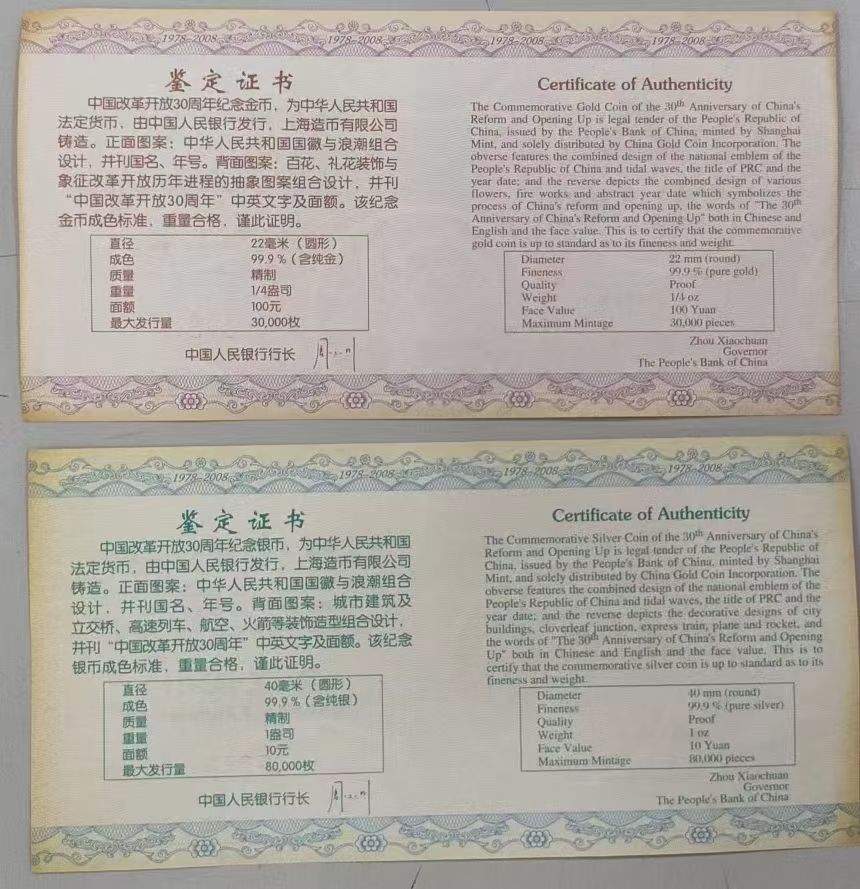 1978-2008 1978-2008 1978-2008 1978-2008
鉴定证书
中国改革开放30周年纪念金币，为中华人民共和国
法定货币，由中国人民银行发行，上海造币有限公司
铸造。正面图案：中华人民共和国国徽与浪潮组合
设计，并刊国名、年号。背面图案：百花、礼花装饰与
象征改革开放历年进程的抽象图案组合设计，并刊
“中国改革开放30周年”中英文字及面额。该纪念
金币成色标准，重量合格，谨此证明。
直径 22毫米（圆形）
成色 99.9%（含纯金）
质量 精制
重量 1/4盎司
面额 100元
最大发行量 30,000枚
中国人民银行行长
Certificate of Authenticity
The Commemorative Gold Coin of the 30th Anniversary of China's
Reform and Opening Up is legal tender of the People's Republic of
China, issued by the People's Bank of China, minted by Shanghai
Mint, and solely distributed by China Gold Coin Incorporation. The
obverse features the combined design of the national emblem of the
People's Republic of China and tidal waves, the title of PRC and the
year date; and the reverse depicts the combined design of various
flowers, fire works and abstract year date which symbolizes the
process of China's reform and opening up, the words of "The 30th
Anniversary of China's Reform and Opening Up" both in Chinese and
English and the face value. This is to certify that the commemorative
gold coin is up to standard as to its fineness and weight.
Diameter 22 mm (round)
Fineness 99.9 % (pure gold)
Quality Proof
Weight 1/4 oz
Face Value 100 Yuan
Maximum Mintage 30,000 pieces
Zhou Xiaochuan
Governor
The People's Bank of China
1978-2008 1978-2008 1978-2008 1978-2008
鉴定证书
中国改革开放30周年纪念银币，为中华人民共和国
法定货币，由中国人民银行发行，上海造币有限公司
铸造。正面图案：中华人民共和国国徽与浪潮组合
设计，并刊国名、年号。背面图案：城市建筑及
立交桥、高速列车、航空、火箭等装饰造型组合设计，
并刊“中国改革开放30周年”中英文字及面额。该纪念
银币成色标准，重量合格，谨此证明。
直径 40毫米（圆形）
成色 99.9%（含纯银）
质量 精制
重量 1盎司
面额 10元
最大发行量 80,000枚
中国人民银行行长
Certificate of Authenticity
The Commemorative Silver Coin of the 30th Anniversary of China's
Reform and Opening Up is legal tender of the People's Republic of
China, issued by the People's Bank of China, minted by Shanghai
Mint, and solely distributed by China Gold Coin Incorporation. The
obverse features the combined design of the national emblem of the
People's Republic of China and tidal waves, the title of PRC and the
year date; and the reverse depicts the decorative designs of city
buildings, cloverleaf junction, express train, plane and rocket, and
the words of "The 30th Anniversary of China's Reform and Opening
Up" both in Chinese and English and the face value. This is to
certify that the commemorative silver coin is up to standard as to its
fineness and weight.
Diameter 40 mm (round)
Fineness 99.9 % (pure silver)
Quality Proof
Weight 1 oz
Face Value 10 Yuan
Maximum Mintage 80,000 pieces
Zhou Xiaochuan
Governor
The People's Bank of China